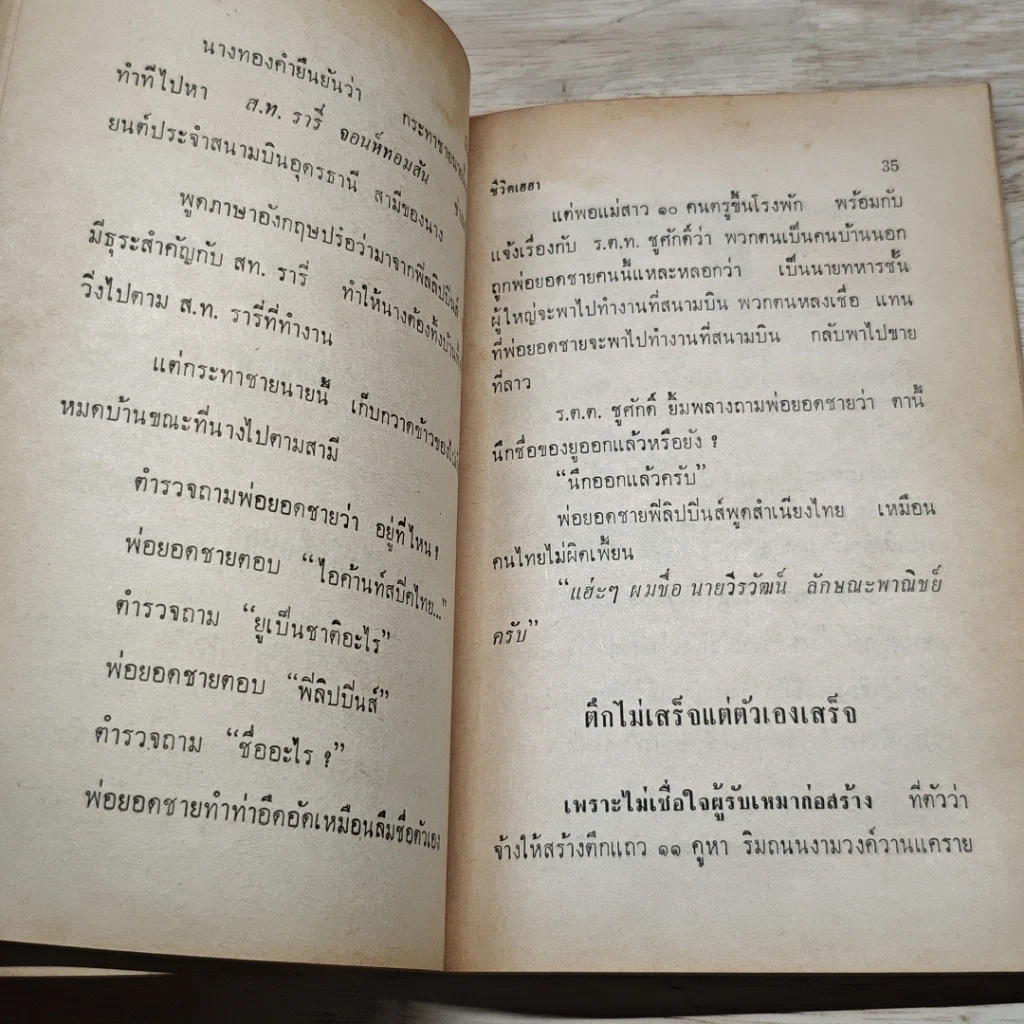 นางทองคำยืนยันว่า กระทาชายนายนี้
ทำทีไปหา ส.ท. รารี่ จอนห์ทอมสัน
ยนต์ประจำสนามบินอุดรธานี สามีของนาง
พูดภาษาอังกฤษปร๋อว่ามาจากฟิลลิปปีนส์
มีธุระสำคัญกับ สท. รารี่ ทำให้นางต้องทิ้งบ้าน
วิ่งไปตาม ส.ท. รารี่ที่ทำงาน
แต่กระทาชายนายนี้ เก็บกวาดข้าวของ
หมดบ้านขณะที่นางไปตามสามี
ตำรวจถามพ่อยอดชายว่า อยู่ที่ไหน?
พ่อยอดชายตอบ “ไอค้านท์สปีคไทย...”
ตำรวจถาม “ยูเป็นชาติอะไร”
พ่อยอดชายตอบ “ฟิลิปปีนส์”
ตำรวจถาม “ชื่ออะไร ?”
พ่อยอดชายทำท่าอึดอัดเหมือนลืมชื่อตัวเอง
ชีวิตเฮฮา 35
แต่พอแม่สาว ๑๐ คนตรูขึ้นโรงพัก พร้อมกับ
แจ้งเรื่องกับ ร.ต.ท. ชูศักดิ์ว่า พวกตนเป็นคนบ้านนอก
ถูกพ่อยอดชายคนนี้แหละหลอกว่า เป็นนายทหารชั้น
ผู้ใหญ่จะพาไปทำงานที่สนามบิน พวกตนหลงเชื่อ แทน
ที่พ่อยอดชายจะพาไปทำงานที่สนามบิน กลับพาไปขาย
ที่ลาว
ร.ต.ต. ชูศักดิ์ ยิ้มพลางถามพ่อยอดชายว่า ตานี้
นึกชื่อของยูออกแล้วหรือยัง ?
“นึกออกแล้วครับ”
พ่อยอดชายฟิลิปปีนส์พูดสำเนียงไทย เหมือน
คนไทยไม่ผิดเพี้ยน
“แฮ่ะๆ ผมชื่อ นายวีรวัฒน์ ลักษณะพาณิชย์
ครับ”
ตึกไม่เสร็จแต่ตัวเองเสร็จ
เพราะไม่เชื่อใจผู้รับเหมาก่อสร้าง ที่ตัวว่า
จ้างให้สร้างตึกแถว ๑๑ คูหา ริมถนนงามวงศ์วานแคราย